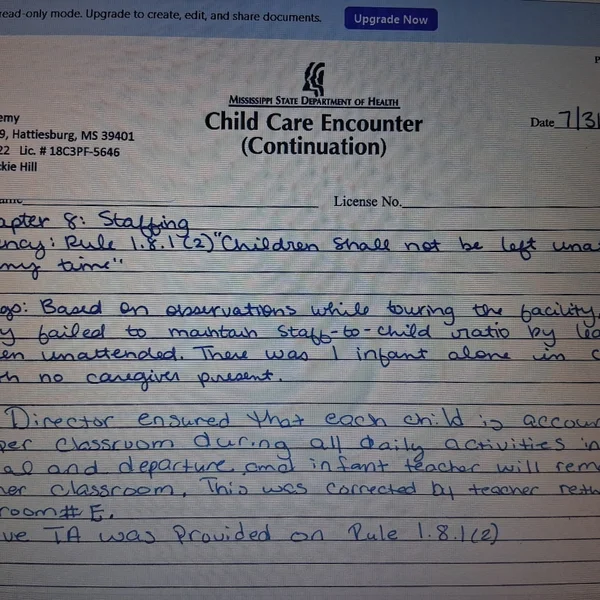 read-only mode. Upgrade to create, edit, and share documents. Upgrade Now
P
MISSISSIPPI STATE DEPARTMENT OF HEALTH
Child Care Encounter
(Continuation)
emy
9, Hattiesburg, MS 39401
22 Lic. # 18C3PF-5646
kie Hill
Date 7/31
License No.
apter 8: Staffing
ency: Rule 1.8.1(2) "Children shall not be left una
my time"
go: Based on observations while touring the facility,
y failed to maintain staff-to-child ratio by lea
en unattended. There was 1 infant alone in c
th no caregiver present.
Director ensured that each child is accoun
per classroom during all daily activities in
al and departure and infant teacher will rema
her classroom. This was corrected by teacher retu
room# E.
ve TA was provided on Rule 1.8.1(2)